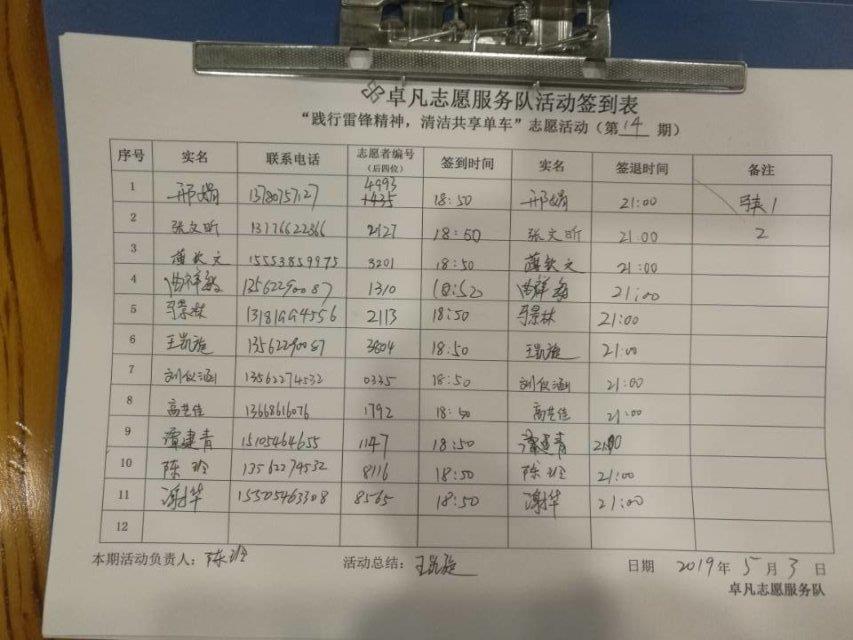 卓凡志愿服务队活动签到表
“践行雷锋精神，清洁共享单车”志愿活动（第 14 期）
序号 实名 联系电话 志愿者编号（后四位） 签到时间 实名 签退时间 备注
1 邢娟 4993 18:50 邢娟 21:00
2 张文昕 13176622366 2127 18:50 张文昕 21:00 2
3 15553859975 3201 18:50 21:00
4 13562290087 1310 18:50 21:00
5 2113 18:50 21:00
6 王凯旋 13562290087 3604 18:50 王凯旋 21:00
7 刘仪涵 13562274532 0335 18:50 刘仪涵 21:00
8 高艺佳 13668616076 1792 18:50 高艺佳 21:00
9 谭建青 15105464655 1147 18:50 谭建青
10 陈玲 13562274532 8116 18:50 陈玲 21:00
11 谢华 15305463308 8565 18:50 谢华 21:00
12
本期活动负责人：陈玲 活动总结：王凯旋 日期 2019 年 5 月 3 日
卓凡志愿服务队